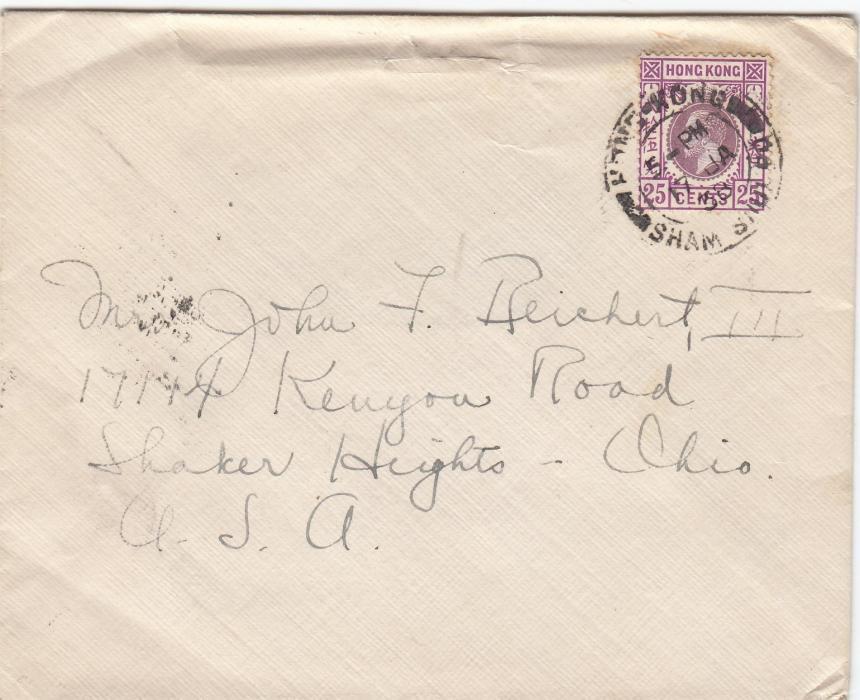 HONG KONG
25 CENTS 25
HONG KONG
SHAM SHUI PO
1 PM
17 JA
Mr. John F. Beichert, III
17144 Kenyon Road
Shaker Heights - Ohio.
U. S. A.